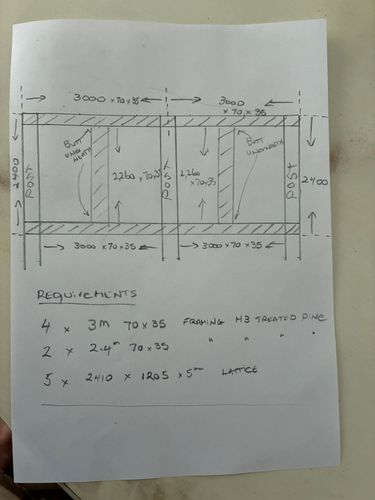 3000 x 70 x 35
3000
x 70 x 35
2400
POST
BUTT
UNDER
NEATH
2260 x 70 x 35
POST
2,260
x 70 x 35
BUTT
UNDERNEATH
POST
2400
3000 x 70 x 35
3000 x 70 x 35
REQUIREMENTS
4 x 3m 70 x 35 FRAMING H3 TREATED PINE
2 x 2.4m 70 x 35 " " " "
5 x 2410 x 1205 x 5mm LATTICE